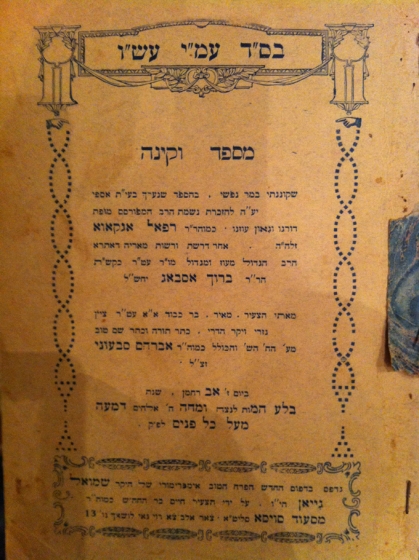 בס"ד עמ"י עש"ו
מספד וקינה
שקוננתי במר נפשי . בהספד שנערך בעי"ת אספי
יע"ה להזכרת נשמת הרב המפורסם מופת
דורנו וגאון עוזנו . כמוהר"ר רפאל אנקאווא
זלה"ה אחר דרשת ורשות מאריה דאתרא
הרב הגדול מעוז ומגדול מו"ר עט"ר כקש"ת
חר"ר ברוך אסבאג ישט"ל
מאתי הצעיר . מאיר . בר כבוד א"א עט"ר ציץ
נזרי ויקר הדרי . כתר תורה וכתר שם טוב
מע' החה' הש' והכולל כמוה"ר אברהם סבעוני
זצ"ל
ביום ז' אב רחמן , שנת
בלע המות לנצח ומחה ה' אלהים דמעה
מעל כל פנים לפ"ק
נדפס בדפוס החדש חפרה חטוב אימפרימורי של היקר שמואל
גייאן הי"ו על ידי הצעיר חיים בר החה"ש כמוה"ר
מסעוד סויסא סליט"א